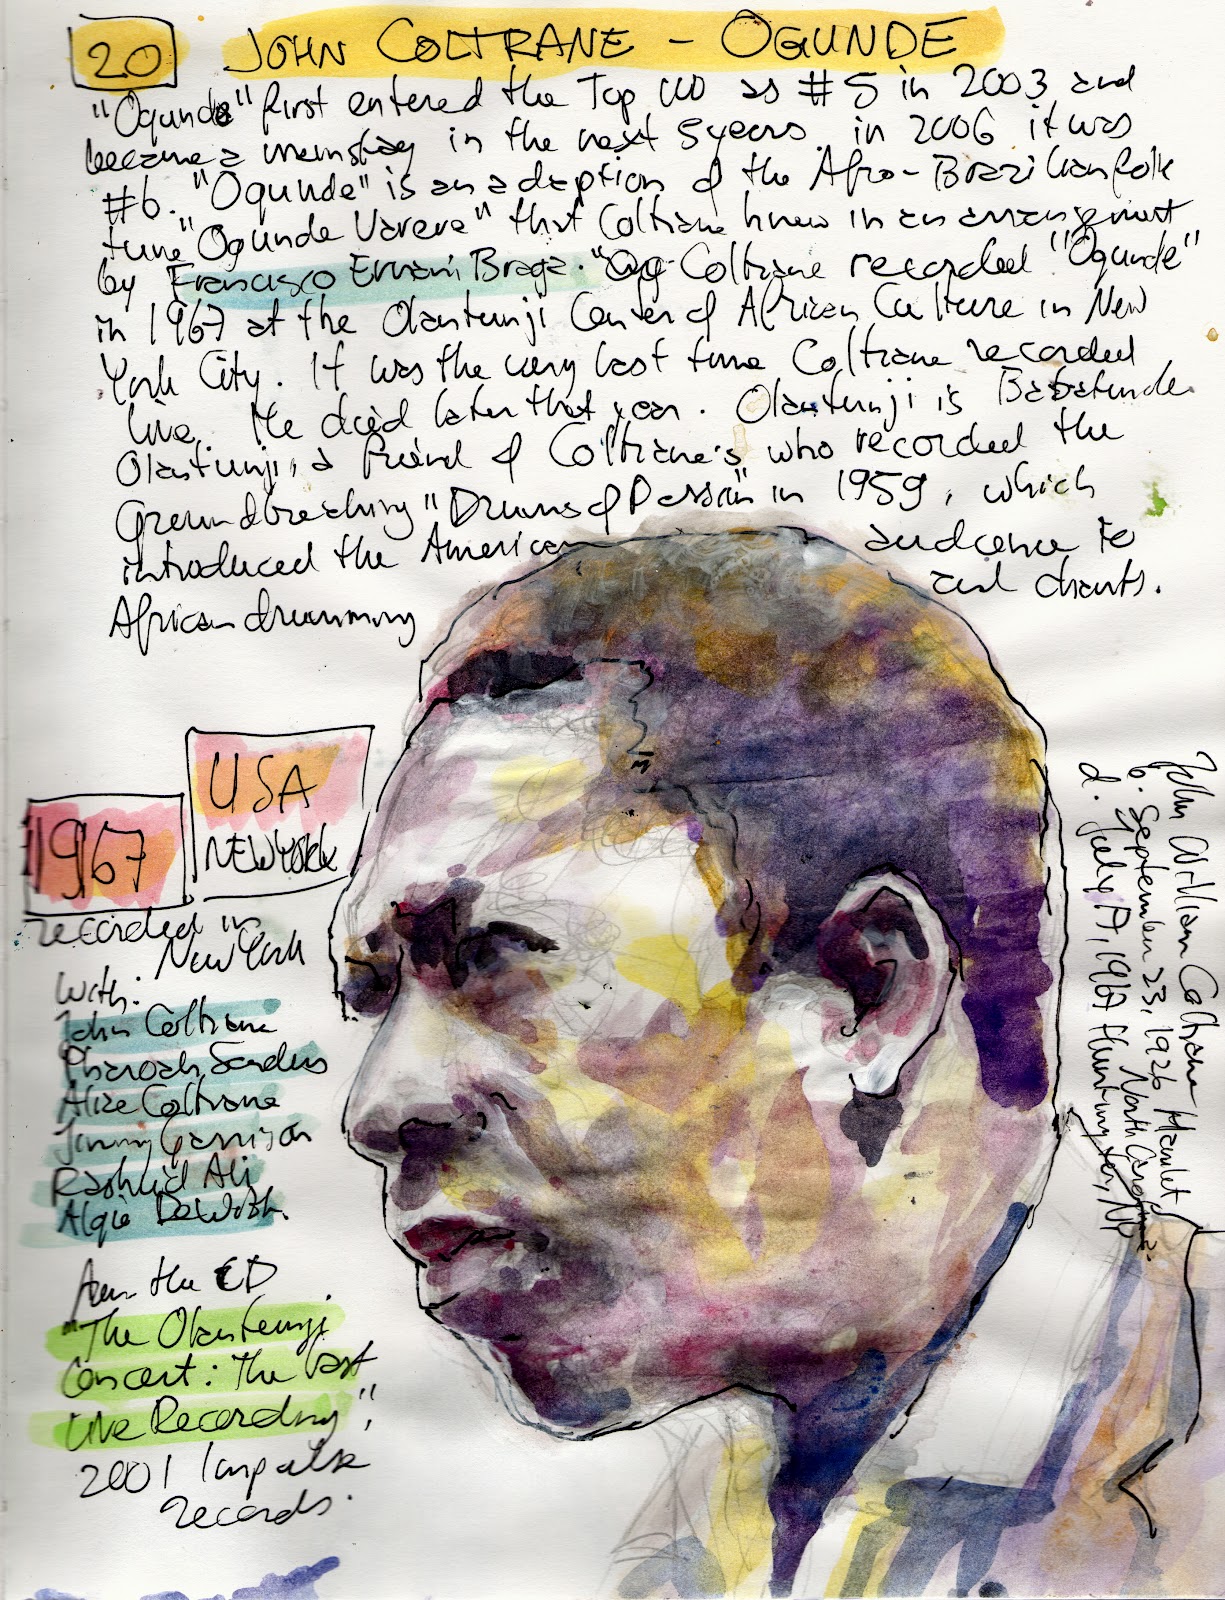 20 JOHN COLTRANE - OGUNDE
"Ogunde" first entered the Top 100 as #5 in 2003 and
became a mainstay in the next 5 years. in 2006 it was
#6. "Ogunde" is an adaption of the Afro-Brazilian folk
tune "Ogunde Varere" that Coltrane knew in an arrangement
by Francisco Ernani Braga. Coltrane recorded "Ogunde"
in 1967 at the Olantunji Center of African Culture in New
York City. It was the very last time Coltrane recorded
live. He died later that year. Olantunji is Babatunde
Olantunji, a friend of Coltrane's who recorded the
Groundbreaking "Drums of Passion" in 1959, which
introduced the American audience to
African drumming and chants.
USA
NEW YORK
1967
recorded in
New York
with:
John Coltrane
Pharoah Sanders
Alice Coltrane
Jimmy Garrison
Rashied Ali
Algie DeWitt
from the CD
"The Olantunji
Concert: The Last
Live Recording",
2001 Impulse
records.
John William Coltrane
b. September 23, 1926 Hamlet
North Carolina
d. July 17, 1967 Huntington, NY